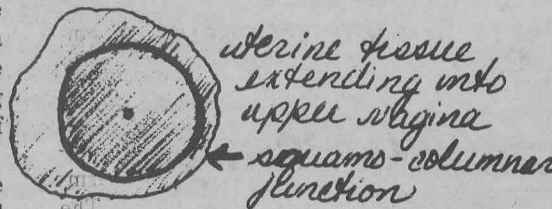 uterine tissue
extending into
upper vagina
squamo-columnar
junction